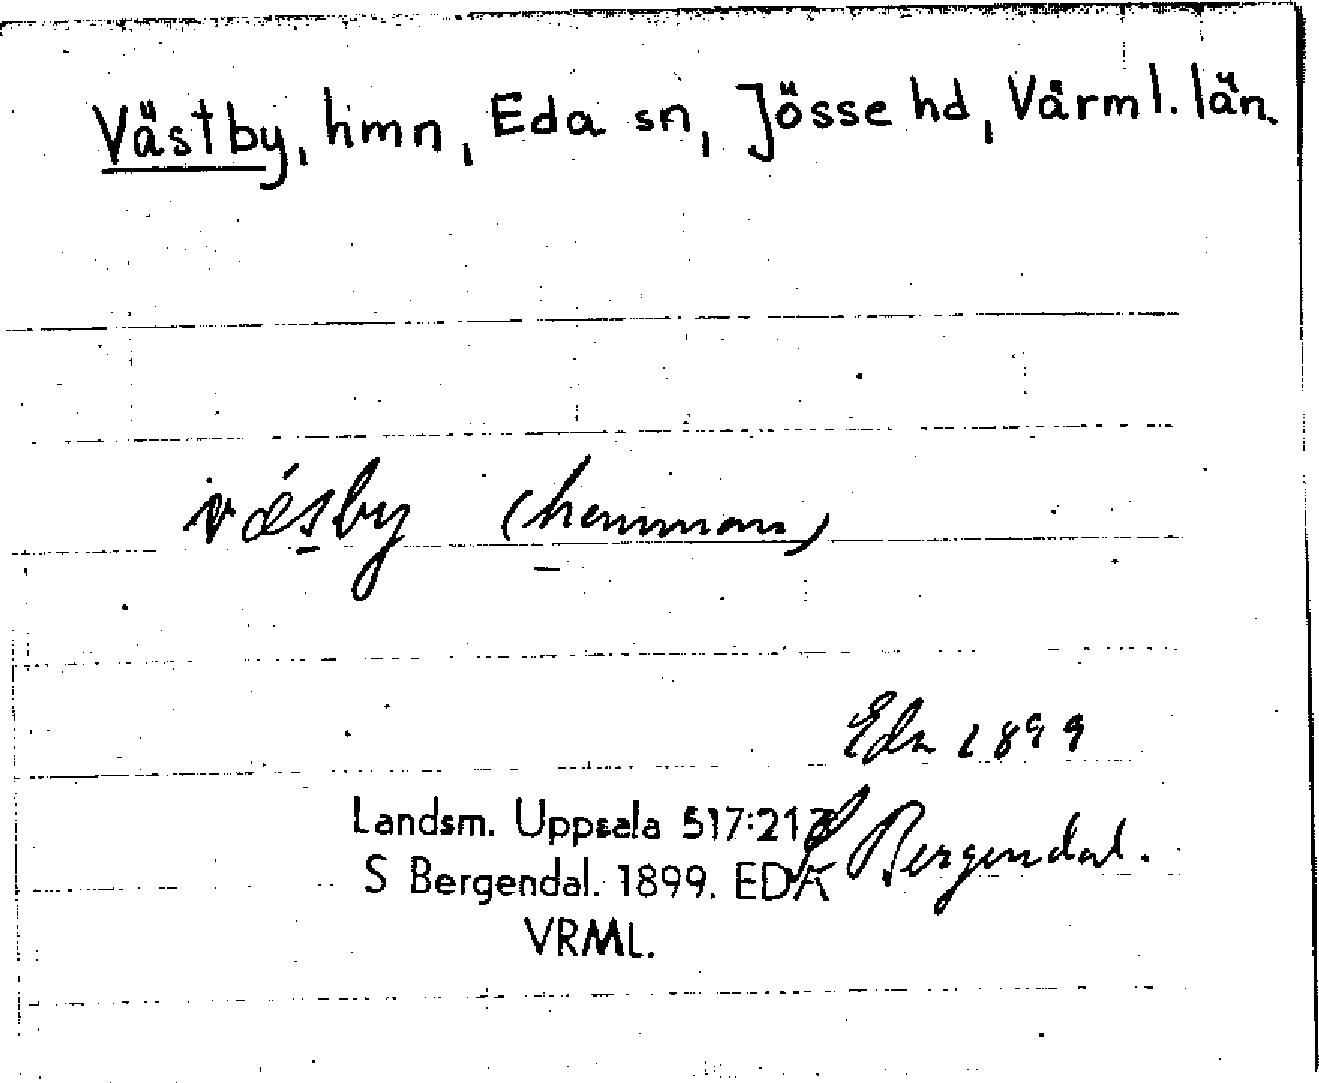 Västby, hmn, Eda sn, Jösse hd, Värml. län
vǽsby (hemman)
Eda 1899
S Bergendal.
Landsm. Uppsala 517:213
S Bergendal. 1899. EDA
VRML.